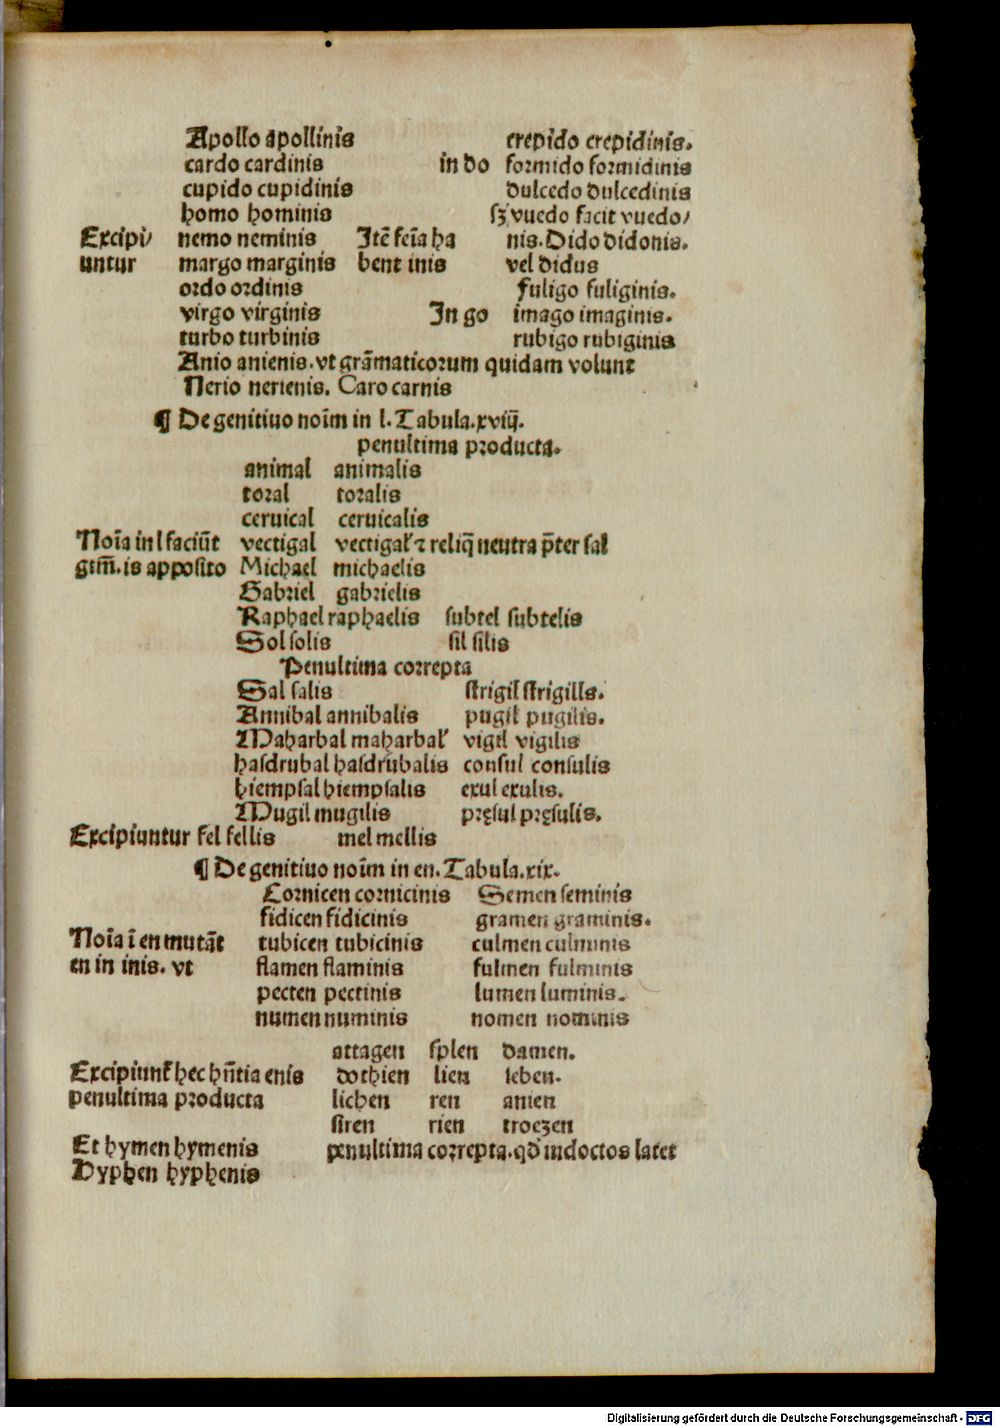 Apollo apollinis crepido crepidinis.
cardo cardinis in do formido formidinis
cupido cupidinis dulcedo dulcedinis
homo hominis sꝫ vuedo facit vuedo/
Excipi/ nemo neminis Itē feīa ha nis. Dido didonis.
untur margo marginis bent inis vel didus
ordo ordinis fuligo fuliginis.
virgo virginis In go imago imaginis.
turbo turbinis rubigo rubiginis
Anio anienis. vt grāmaticorum quidam volunt
Nerio nerienis. Caro carnis
¶ De genitiuo noīm in l. Tabula. xviij.
penultima producta.
animal animalis
toral toralis
ceruical ceruicalis
Noīa in l faciūt vectigal vectigal' ⁊ reliq̄ neutra p̄ter sal
gtm̄. is apposito Michael michaelis
Gabriel gabrielis
Raphael raphaelis subtel subtelis
Sol solis sil silis
Penultima correpta
Sal salis strigil strigilis.
Annibal annibalis pugil pugilis.
Maharbal maharbal' vigil vigilis
hasdrubal hasdrubalis consul consulis
hiempsal hiempsalis exul exulis.
Mugil mugilis pręsul pręsulis.
Excipiuntur fel fellis mel mellis
¶ De genitiuo noīm in en. Tabula. xix.
Cornicen cornicinis Semen seminis
fidicen fidicinis gramen graminis.
Noīa ī en mutāt tubicen tubicinis culmen culminis
en in inis. vt flamen flaminis fulmen fulminis
pecten pectinis lumen luminis.
numen numinis nomen nominis
attagen splen damen.
Excipiunt' hec hn̄tia enis dothien lien seben.
penultima producta lichen ren anien
siren rien troezen
Et hymen hymenis penultima correpta. qd' indoctos latet
Hyphen hyphenis
Digitalisierung gefördert durch die Deutsche Forschungsgemeinschaft - DFG